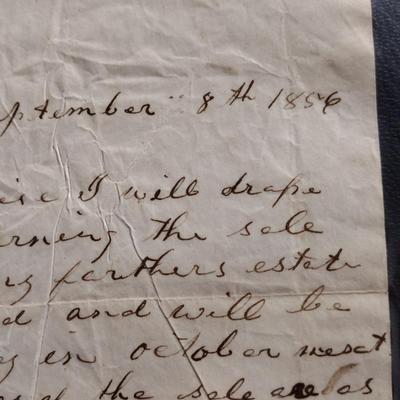 ptember 8th 1856
ise I will drape
erning the sale
farthers estate
d and will be
in october next
the sale are as